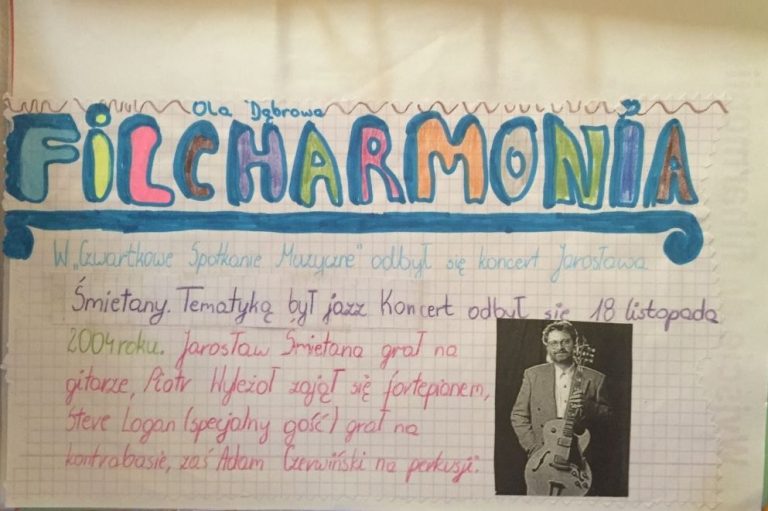 Ola Dąbrowa
FiLCHARMONIA
W „Czwartkowe Spotkanie Muzyczne" odbył się koncert Jarosława
Śmietany. Tematyką był jazz Koncert odbył się 18 listopada
2004 roku. Jarosław Śmietana grał na
gitarze, Piotr Wyleżoł zajął się fortepianem,
Steve Logan (specjalny gość) grał na
kontrabasie, zaś Adam Czerwiński na perkusji.